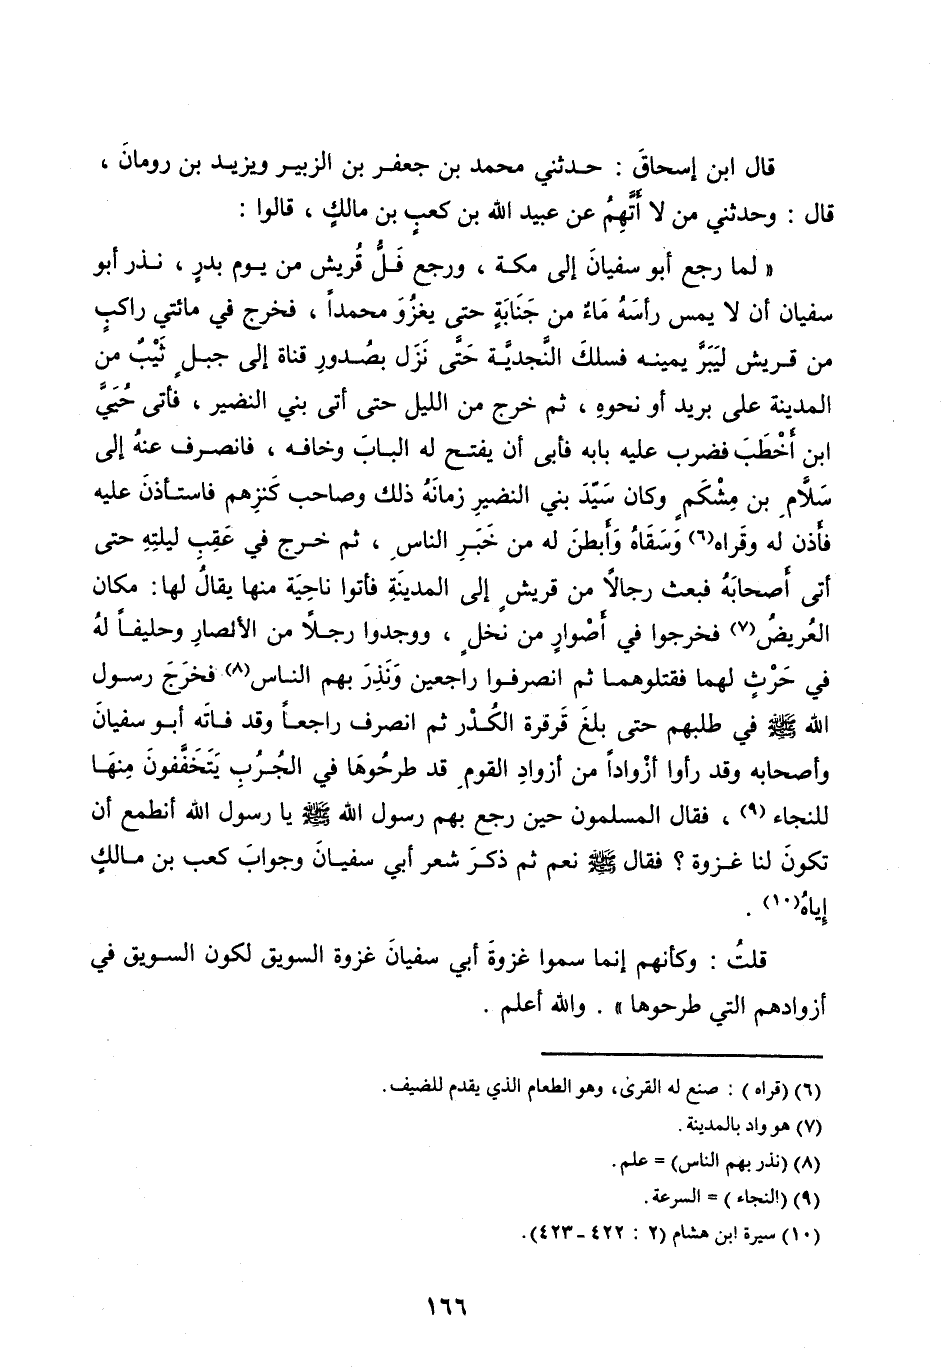 قال ابن إسحاقَ : حدثني محمد بن جعفر بن الزبير ويزيد بن رومانَ ،
قال : وحدثني من لا أَتَّهِمُ عن عبيد الله بن كعبٍ بن مالكٍ ، قالوا :
« لما رجع أبو سفيانَ إلى مكة ، ورجع فَلُّ قُريش من يوم بدرٍ ، نذر أبو
سفيان أن لا يمس رأسَهُ مَاءٌ من جَنَابَةٍ حتى يغزُوَ محمداً ، فخرج في مائتي راكبٍ
من قريش ليَبَرَّ يمينه فسلكَ النَّجديَّة حَتَّى نَزَل بصُدورِ قناة إلى جبلٍ ثَيْبٌ من
المدينة على بريد أو نحوِهِ ، ثم خرج من الليل حتى أتى بني النضير ، فأتى حُيَيَّ
ابن أَخْطَبَ فضرب عليه بابه فأبى أن يفتح له البابَ وخافه ، فانصرف عنهُ إلى
سَلَّامِ بن مِشْكَمٍ وكان سَيِّدَ بني النضيرِ زمانَهُ ذلك وصاحب كَنزِهم فاستأذنَ عليه
فأَذن له وقَراه(٦) وَسَقَاهُ وَأَبطنَ له من خَبَرِ الناسِ ، ثم خرج في عَقِبِ ليلتِهِ حتى
أتى أَصحابَهُ فبعث رجالًا من قريشٍ إلى المدينَةِ فأتوا ناحِيَة منها يقالُ لها : مكان
العُريضُ(٧) فخرجوا في أَصْوارٍ من نخلٍ ، ووجدوا رجلًا من الأنصارِ وحليفاً لهُ
في حَرْثٍ لهما فقتلوهما ثم انصرفوا راجعين وَنَذِرَ بهم الناس(٨) فخرَجَ رسول
الله ﷺ في طلبهم حتى بلغَ قَرقرة الكُدْر ثم انصرف راجعاً وقد فاتَه أبو سفيانَ
وأصحابه وقد رأوا أزْواداً من أزوادِ القومِ قد طرحُوهَا في الجُرُبِ يَتَخَفَّفونَ مِنهَا
للنجاء (٩) ، فقال المسلمون حين رجع بهم رسول الله ﷺ يا رسول الله أنطمع أن
تكونَ لنا غزوة ؟ فقال ﷺ نعم ثم ذكرَ شعر أبي سفيانَ وجوابَ كعب بن مالكٍ
إياهُ(١٠) .
قلتُ : وكأنهم إنما سموا غزوةَ أبي سفيانَ غزوة السويق لكون السويق في
أزوادهم التي طرحوها » . والله أعلم .
(٦) (قراه ) : صنع له القرى، وهو الطعام الذي يقدم للضيف.
(٧) هو واد بالمدينة .
(٨) (نذر بهم الناس) = علم.
(٩) (النجاء ) = السرعة .
(١٠) سيرة ابن هشام (٢ : ٤٢٢ - ٤٢٣).
١٦٦